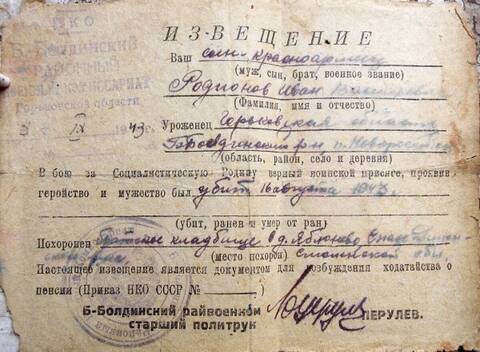 НКО
Б-Болдинский
РАЙОННЫЙ
ВОЕНКОМИССАРИАТ
Горьковской области
IX 1943 г.
ИЗВЕЩЕНИЕ
Ваш сын красноармеец
(муж, сын, брат, военное звание)
Родионов Иван
(Фамилия, имя и отчество)
Уроженец Горьковская область
Б-Болдинский р-н
(область, район, село и деревня)
В бою за Социалистическую Родину верный воинской присяге, проявив
геройство и мужество был убит 16 августа 1943 г.
(убит, ранен и умер от ран)
Похоронен братское кладбище д. Яблоково Спас-Демен
(место похорон) Смоленской обл.
Настоящее извещение является документом для возбуждения ходатайства о
пенсии (Приказ НКО СССР №
Б-Болдинский райвоенком
старший политрук
ПЕРУЛЕВ.